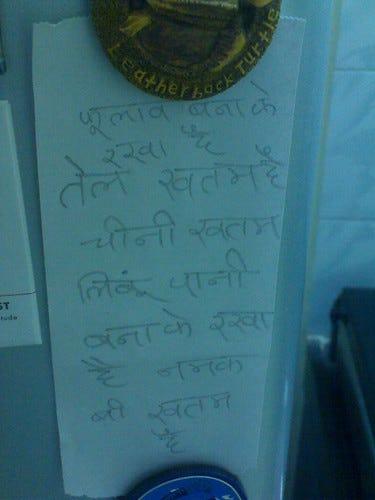 Leatherback Turtle
पुलाव बना के
रखा है
तेल खतम है
चीनी खतम
लिंबू पानी
बना के रखा
है नमक
बी खतम
है
ST